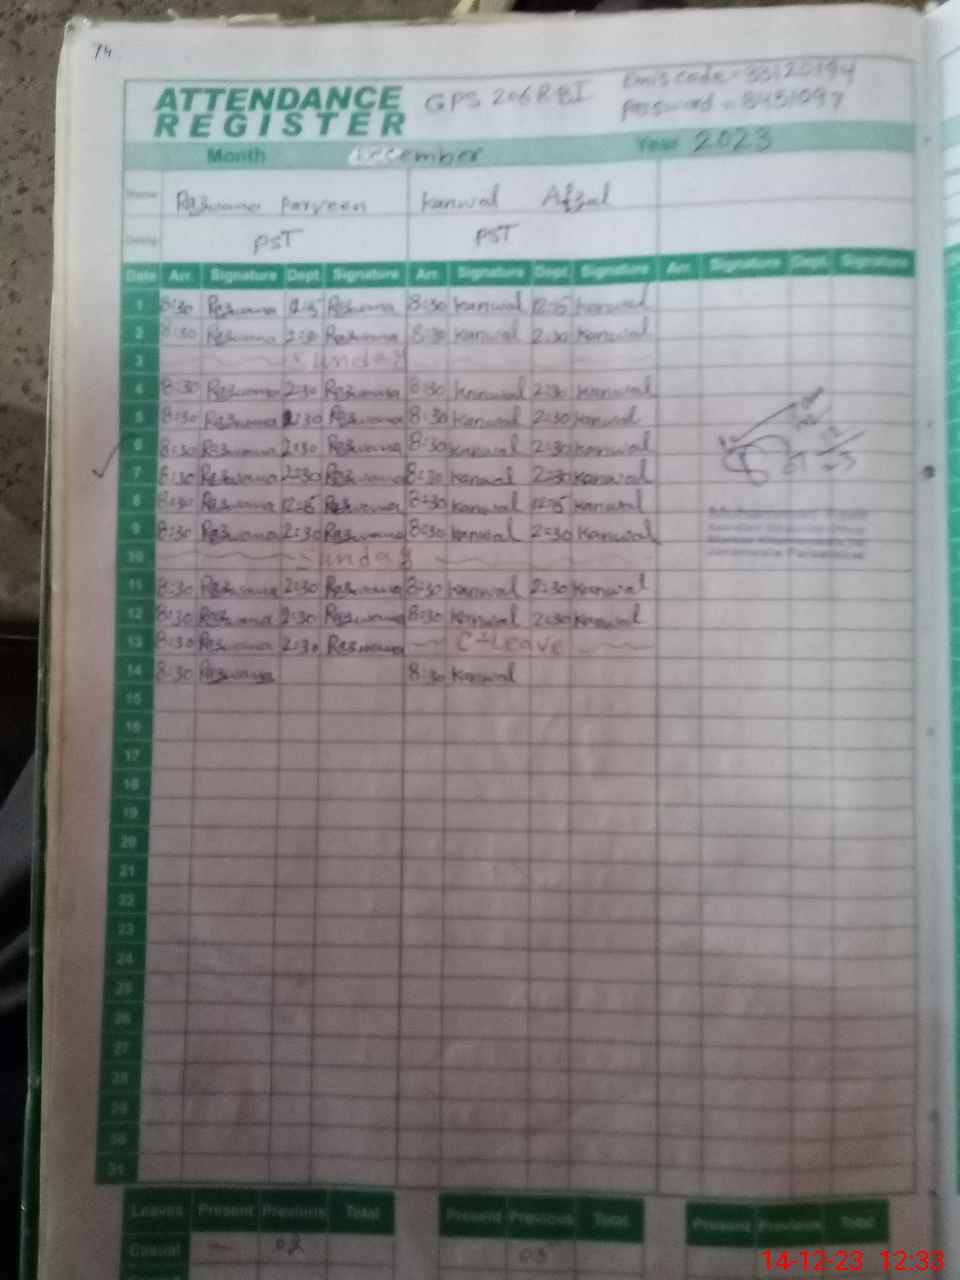 74
ATTENDANCE
REGISTER
GPS 206 RBI
Emis code = 33120194
Password = 8451097
Month December Year 2023
Name Razwana Parveen Kanwal Afzal
PST PST
Date Arr. Signature Dept. Signature Arr. Signature Dept. Signature Arr. Signature Dept. Signature
1 8:30 Razwana 12:15 Razwana 8:30 Kanwal 12:15 Kanwal
2 8:30 Razwana 2:30 Razwana 8:30 Kanwal 2:30 Kanwal
3 Sunday
4 8:30 Razwana 2:30 Razwana 8:30 Kanwal 2:30 Kanwal
5 8:30 Razwana 2:30 Razwana 8:30 Kanwal 2:30 Kanwal
6 8:30 Razwana 2:30 Razwana 8:30 Kanwal 2:30 Kanwal
7 8:30 Razwana 2:30 Razwana 8:30 Kanwal 2:30 Kanwal
8 8:30 Razwana 12:15 Razwana 8:30 Kanwal 12:15 Kanwal
9 8:30 Razwana 2:30 Razwana 8:30 Kanwal 2:30 Kanwal
10 Sunday
11 8:30 Razwana 2:30 Razwana 8:30 Kanwal 2:30 Kanwal
12 8:30 Razwana 2:30 Razwana 8:30 Kanwal 2:30 Kanwal
13 8:30 Razwana 2:30 Razwana C-Leave
14 8:30 Razwana 8:30 Kanwal
15
16
17
18
19
20
21
22
23
24
25
26
27
28
29
30
31
Leaves Present Previous Total Present Previous Total Present Previous Total
Casual — 02 03
14-12-23 12:33